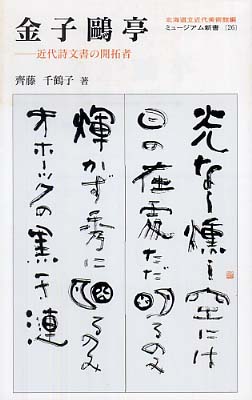 北海道立近代美術館編
ミュージアム新書 (26)
金子鷗亭
——近代詩文書の開拓者
齊藤 千鶴子 著
光なく燻し空には
日の在處ただ
輝かず秀に明るのみ
オホーツクの黒き漣